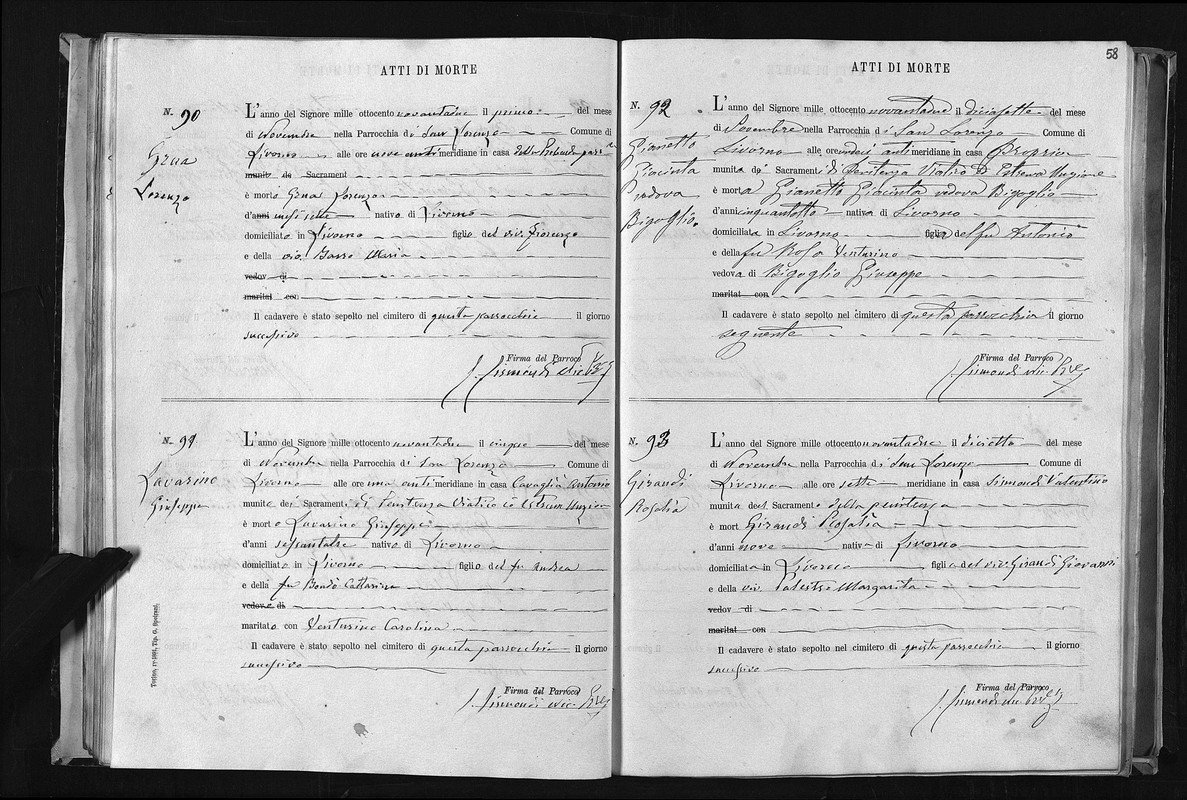 ATTI DI MORTE
N. 90
Grua
Lorenzo
L'anno del Signore mille ottocento novantadue il primo del mese
di Novembre nella Parrocchia di San Lorenzo Comune di
Livorno alle ore nove anti meridiane in casa della
munito de Sacrament
è morto Grua Lorenzo
d'anni mesi sette nativo di Livorno
domiciliato in Livorno figlio del viv. Fiorenzo
e della viv. Maria
vedov di
maritat con
Il cadavere è stato sepolto nel cimitero di questa parrocchia il giorno
successivo
Firma del Parroco
Sismondi Vic.
N. 91
Lavarino
Giuseppe
L'anno del Signore mille ottocento novantadue il cinque del mese
di Novembre nella Parrocchia di San Lorenzo Comune di
Livorno alle ore una anti meridiane in casa Cavaglià Antonio
munito dei Sacramenti di Penitenza Viatico ed Estrema Unzione
è morto Lavarino Giuseppe
d'anni sessantatre nativo di Livorno
domiciliato in Livorno figlio del fu Andrea
e della fu Bondò Cattarina
vedovo di
maritato con Venturino Carolina
Il cadavere è stato sepolto nel cimitero di questa parrocchia il giorno
successivo
Firma del Parroco
Sismondi Vic.
58
ATTI DI MORTE
N. 92
Gianetto
Giacinta
vedova
Bigoglio.
L'anno del Signore mille ottocento novantadue il diciasette del mese
di Novembre nella Parrocchia di San Lorenzo Comune di
Livorno alle ore undeci antimeridiane in casa Propria
munita dei Sacramenti di Penitenza Viatico Ed Estrema Unzione
è morta Gianetto Giacinta vedova Bigoglio
d'anni cinquantotto nativa di Livorno
domiciliata in Livorno figlia del fu Antonio
e della fu Rosa Venturino
vedova di Bigoglio Giuseppe
maritat con
Il cadavere è stato sepolto nel cimitero di questa parrochia il giorno
seguente
Firma del Parroco
Sismondi Vic.
N. 93
Girardi
Rosalia
L'anno del Signore mille ottocento novantadue il diciotto del mese
di Novembre nella Parrocchia di San Lorenzo Comune di
Livorno alle ore sette meridiane in casa Sismondi Valentino
munita del Sacramento della penitenza
è mort Girardi Rosalia
d'anni nove nativa di Livorno
domiciliata in Livorno figlia del viv. Girardi Giovanni
e della viv. Margarita
vedov di
maritat con
Il cadavere è stato sepolto nel cimitero di questa parrocchia il giorno
successivo
Firma del Parroco
Sismondi Vic.